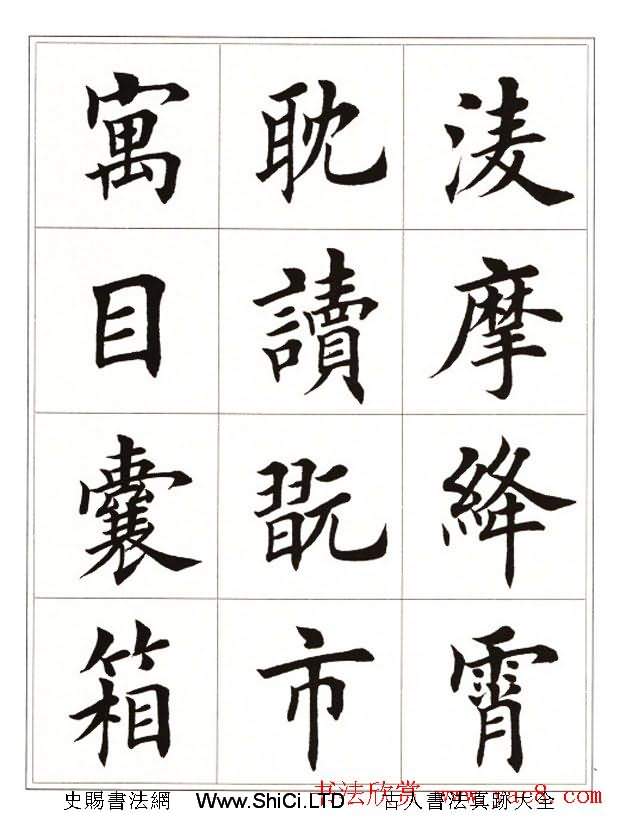 淩摩絳霄
耽讀翫市
寓目囊箱
书法欣赏 www.yac8.com
史賜書法網 Www.ShiCi.LTD 古人書法真跡大全